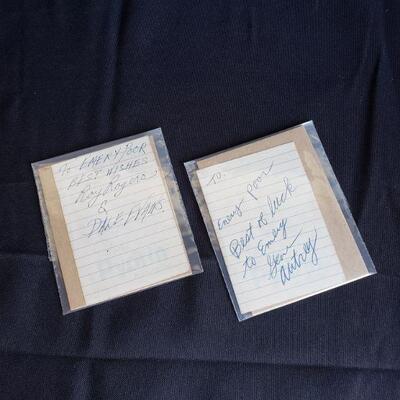 To EMERY POOR
BEST WISHES
Roy Rogers
&
DALE EVANS
To.
Emery Poor
Best of luck
to Emery
Gene
Autry